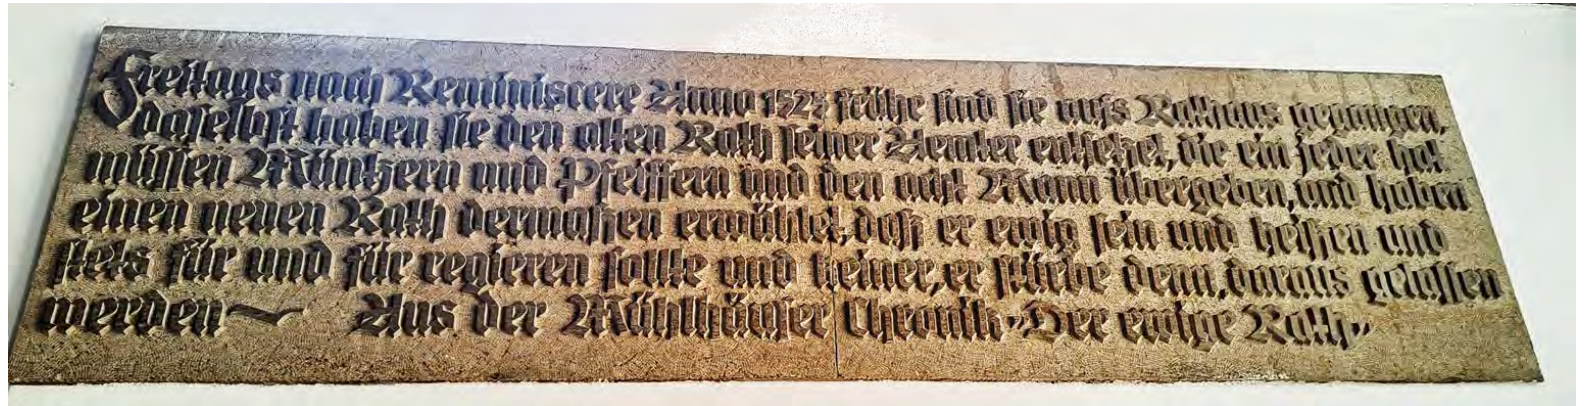 Freitags nach Reminiscere Anno 1525 frühe sind sie aufs Rathaus gegangen,
daselbst haben sie den alten Rath seiner Aemter entsetzet, die ein jeder hat
müssen Müntzern und Pfeiffern und den acht Mann übergeben, und haben
einen neuen Rath dermaßen erwählet, daß er ewig sein und heißen und
stets für und für regieren sollte und keiner, er stürbe denn, daraus gelassen
werden ~ Aus der Mühlhäuser Chronik "Der ewige Rath"